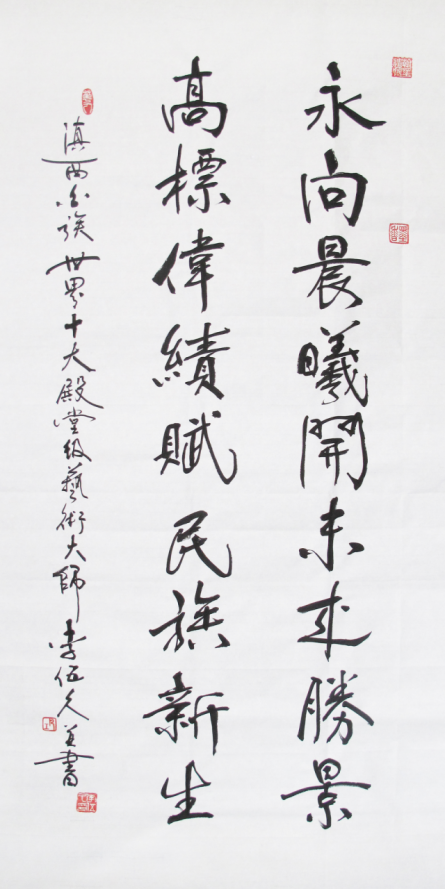 永向晨曦開未來勝景
高標偉績賦民族新生
滇西白族世界十大殿堂級藝術大師 李伍久並書